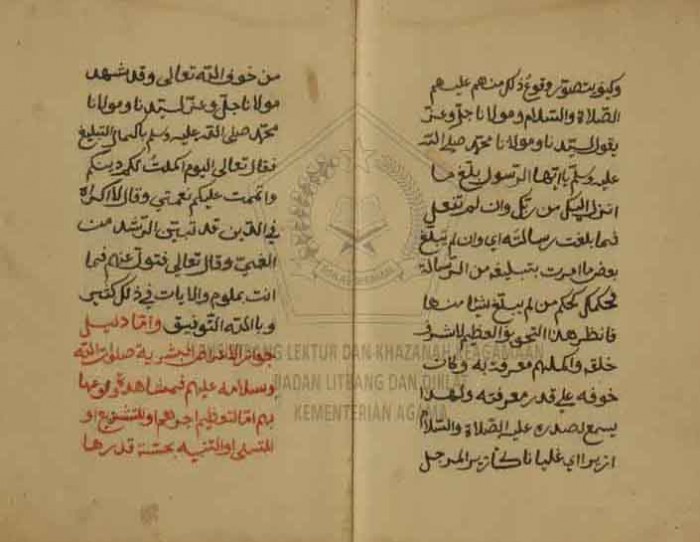 وكيف يتصور وقوع ذلك منهم عليهم
الصلاة والسلام ومولانا جل وعز
يقول لسيدنا ومولانا محمد صلى الله
عليه وسلم يا ايها الرسول بلغ ما
انزل اليك من ربك وان لم تفعل
فما بلغت رسالته اي وان لم تبلغ
بعض ما امرت بتبليغه من الرسالة
فحكمك حكم من لم يبلغ شيئا منها
فانظر هذا التخويف العظيم لاشرف
خلقه واكملهم معرفة به وكان
خوفه على قدر معرفته ولهذا
يسمع لصدره عليه الصلاة والسلام
ازيزا اي غليانا كازيز المرجل
من خوف الله تعالى وقد شهد
مولانا جل وعز لسيدنا ومولانا
محمد صلى الله عليه وسلم بكمال التبليغ
فقال تعالى اليوم اكملت لكم دينكم
واتممت عليكم نعمتي وقال لا اكراه
في الدين قد تبين الرشد من
الغي وقال تعالى فتول عنهم فما
انت بملوم والايات في ذلك كثير
وبالله التوفيق واما دليل
جواز الاعراض البشرية صلوات الله
وسلامه عليهم فمشاهدة وقوعها
بهم اما لتعظيم اجرهم او للتشريع او
للتسلي او التنبيه بخسة قدرها
PUSLITBANG LEKTUR DAN KHAZANAH KEAGAMAAN
BADAN LITBANG DAN DIKLAT
KEMENTERIAN AGAMA